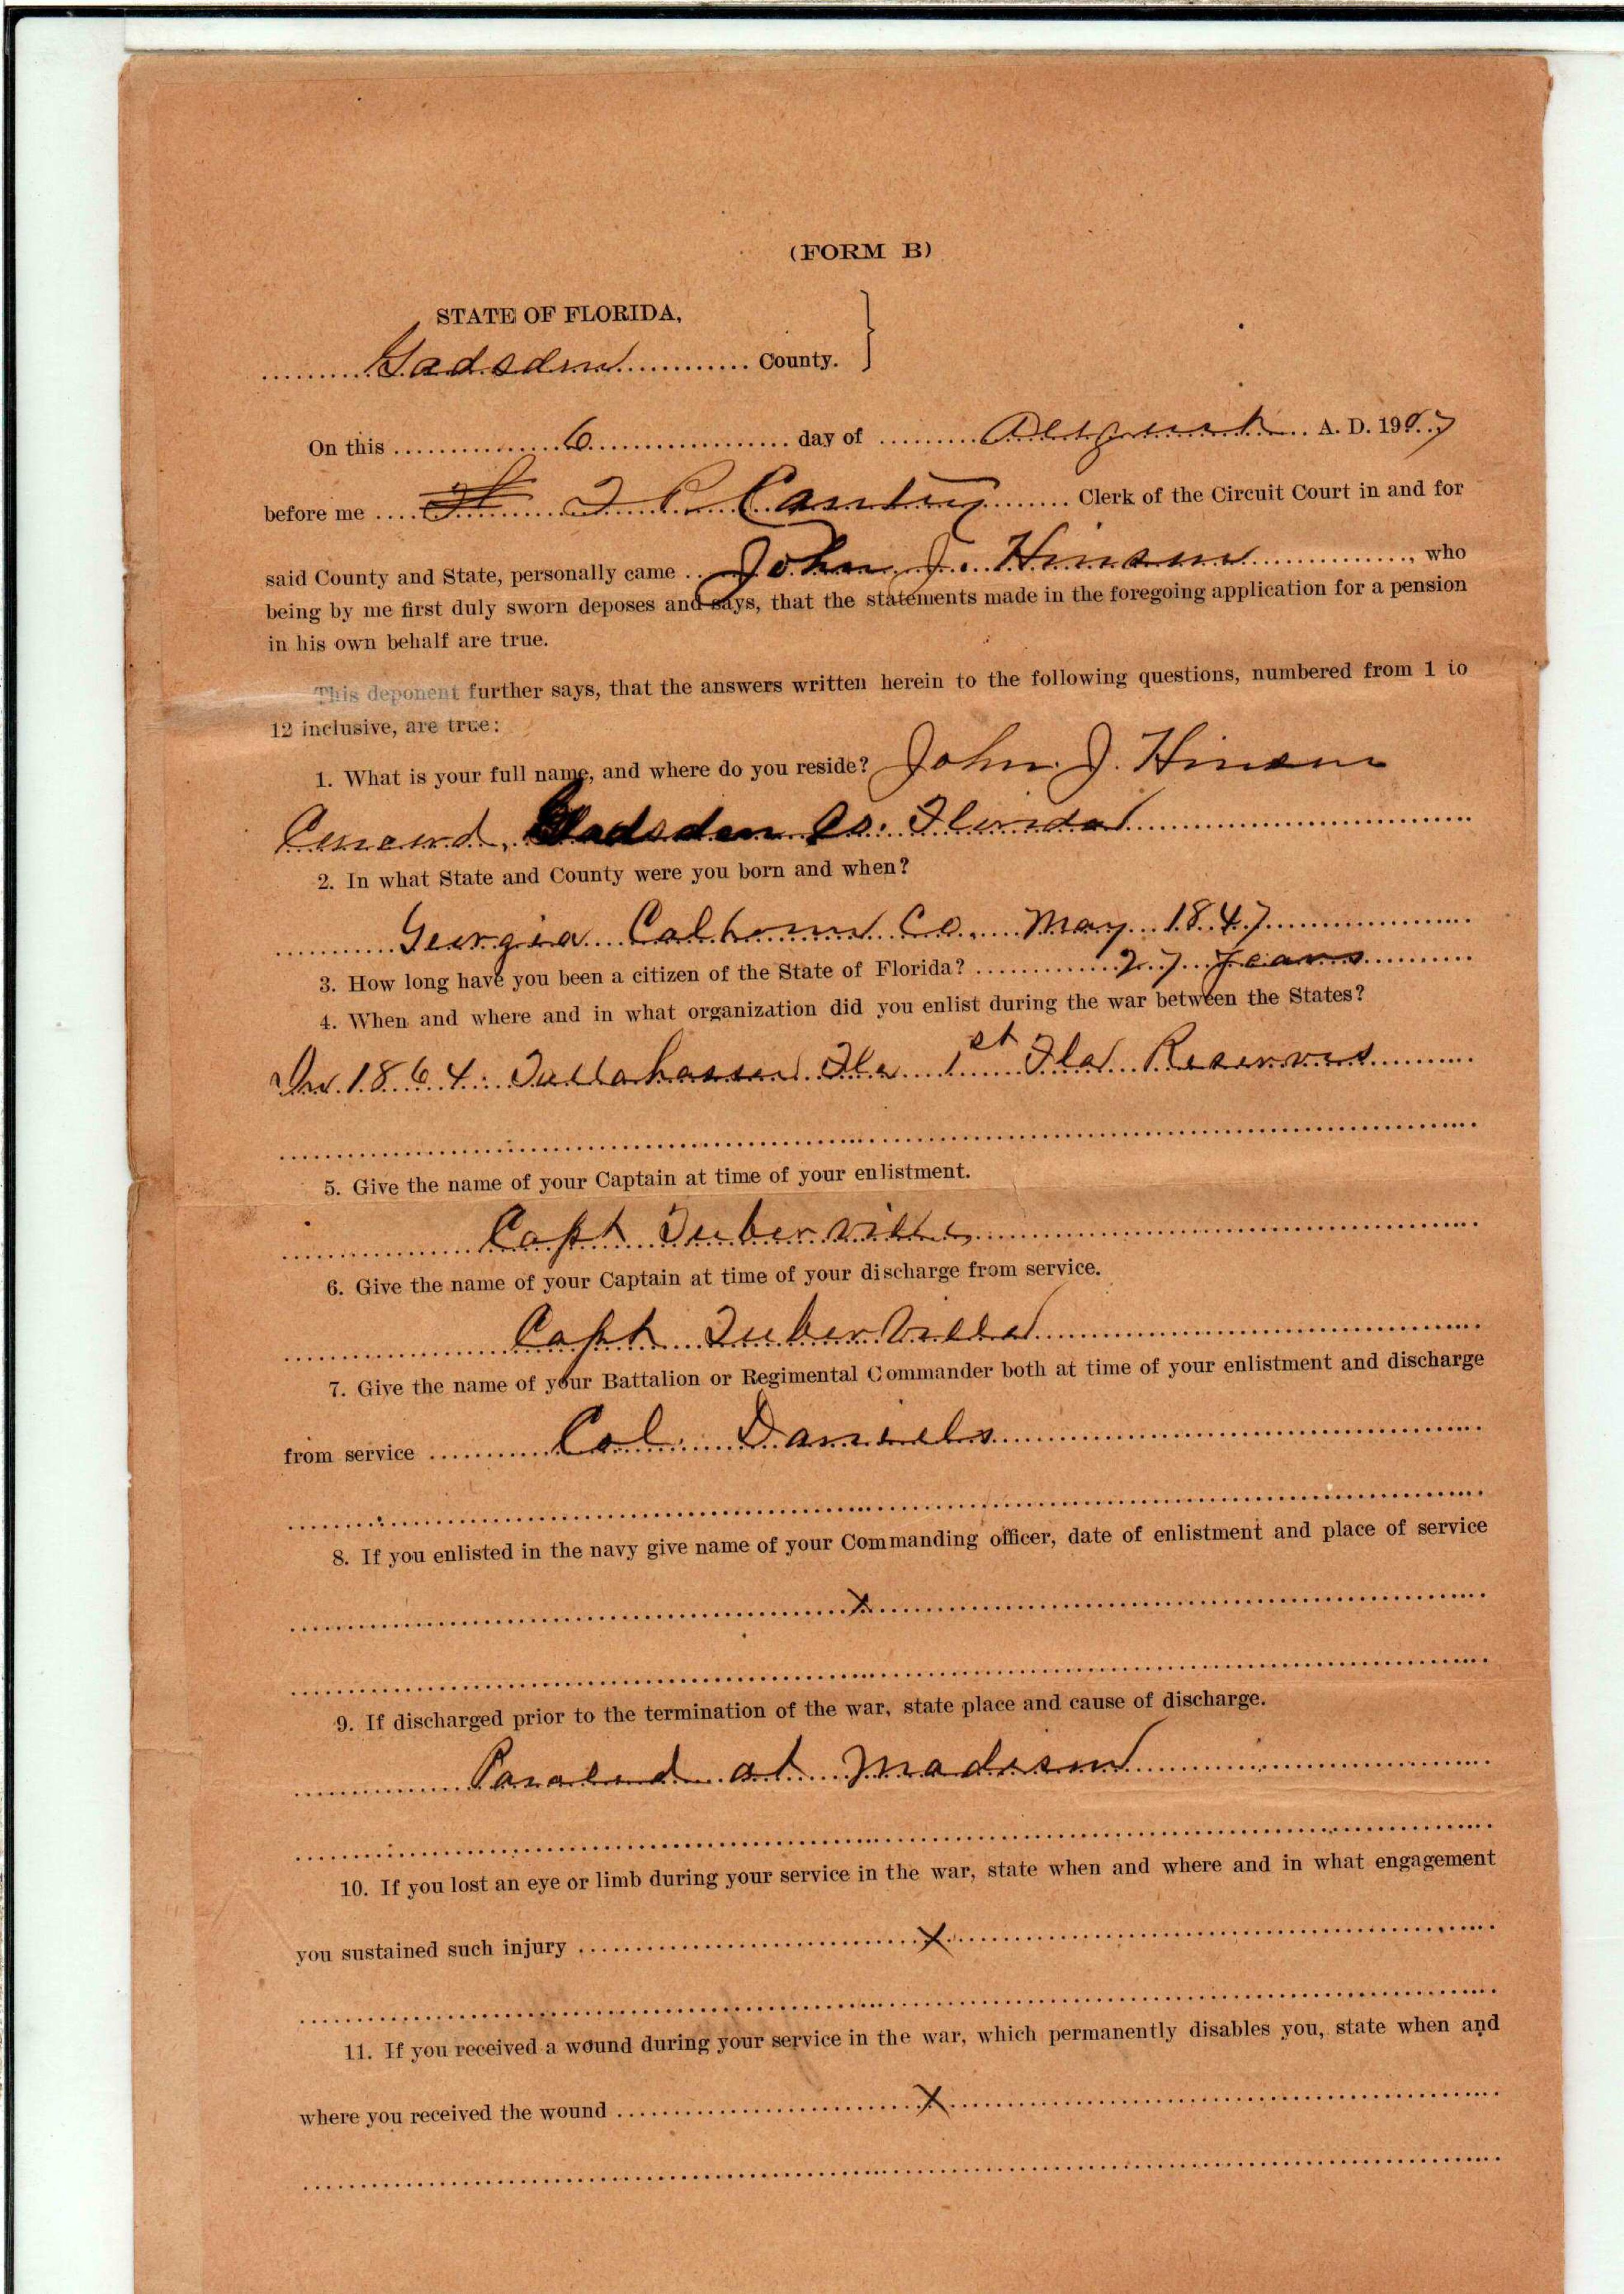 (FORM B)
STATE OF FLORIDA,
Gadsden County.
On this 6 day of August A. D. 1907
before me T R Cantey Clerk of the Circuit Court in and for
said County and State, personally came John J. Hinson, who
being by me first duly sworn deposes and says, that the statements made in the foregoing application for a pension
in his own behalf are true.
This deponent further says, that the answers written herein to the following questions, numbered from 1 to
12 inclusive, are true:
1. What is your full name, and where do you reside? John. J. Hinson
Concord, Gadsden Co. Florida
2. In what State and County were you born and when?
Georgia Calhoun Co. May 1847
3. How long have you been a citizen of the State of Florida? 27 years
4. When and where and in what organization did you enlist during the war between the States?
In 1864. Tallahassee Fla 1st Fla Reserves
5. Give the name of your Captain at time of your enlistment.
Capt Tuberville
6. Give the name of your Captain at time of your discharge from service.
Capt Tuberville
7. Give the name of your Battalion or Regimental Commander both at time of your enlistment and discharge
from service Col. Daniels
8. If you enlisted in the navy give name of your Commanding officer, date of enlistment and place of service
X
9. If discharged prior to the termination of the war, state place and cause of discharge.
Paroled at Madison
10. If you lost an eye or limb during your service in the war, state when and where and in what engagement
you sustained such injury X
11. If you received a wound during your service in the war, which permanently disables you, state when and
where you received the wound X